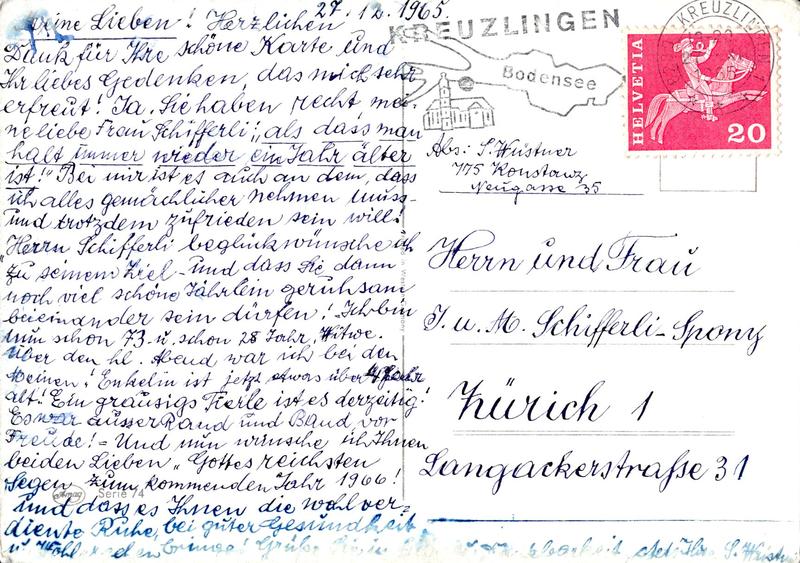 27.12.1965
Meine Lieben! Herzlichen
Dank für Ihre schöne Karte und
Ihr liebes Gedenken, das mich sehr
erfreut! Ja, Sie haben recht mei-
ne liebe Frau Schifferli, „als dass man
halt immer wieder ein Jahr älter
ist!" Bei mir ist es auch an dem, dass
ich alles gemächlicher nehmen muss-
und trotzdem zufrieden sein will!
Herrn Schifferli beglückwünsche ich
zu seinem Ziel - und dass Sie dann
noch viel schöne Jährlein geruhsam
beieinander sein dürfen! Ich bin
nun schon 73 u. schon 28 Jahr, Witwe.
Über den hl. Abend war ich bei den
Meinen! Enkelin ist jetzt etwas über 4 Jahr
alt! Ein grausigs Kerle ist es derzeitig!
Es war ausser Rand und Band vor
Freude! - Und nun wünsche ich Ihnen
beiden Lieben „Gottes reichsten
Segen" zum kommenden Jahr 1966!
und dass es Ihnen die wohlver-
diente Ruhe, bei guter Gesundheit
bringe! Grüße Ihre S. Wüstner
Amag Serie 74
KREUZLINGEN
Bodensee
KREUZLINGEN 1
HELVETIA
20
Abs: S. Wüstner
775 Konstanz
Neugasse 35
Herrn und Frau
J. u. M. Schifferli-Spony
Zürich 1
Langackerstraße 31